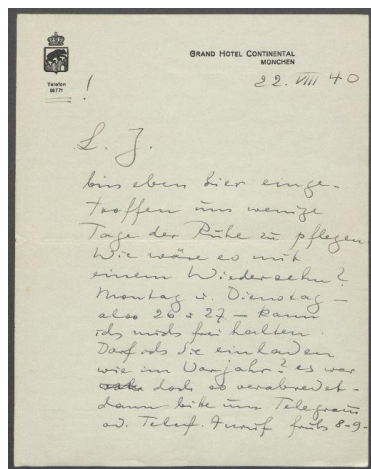 GRAND HOTEL CONTINENTAL
MÜNCHEN
Telefon
22. VIII 40
!
L. J.
bin eben hier einge-
troffen um wenige
Tage der Ruhe zu pflegen
Wie wäre es mit
einem Wiedersehn?
Montag u. Dienstag –
also 26 u 27 – kann
ich mich frei halten.
Darf ich Sie einladen
wie im Vorjahr? es war
doch so verabredet –
dann bitte um Telegram
od. Telef. Anruf früh 8-9-